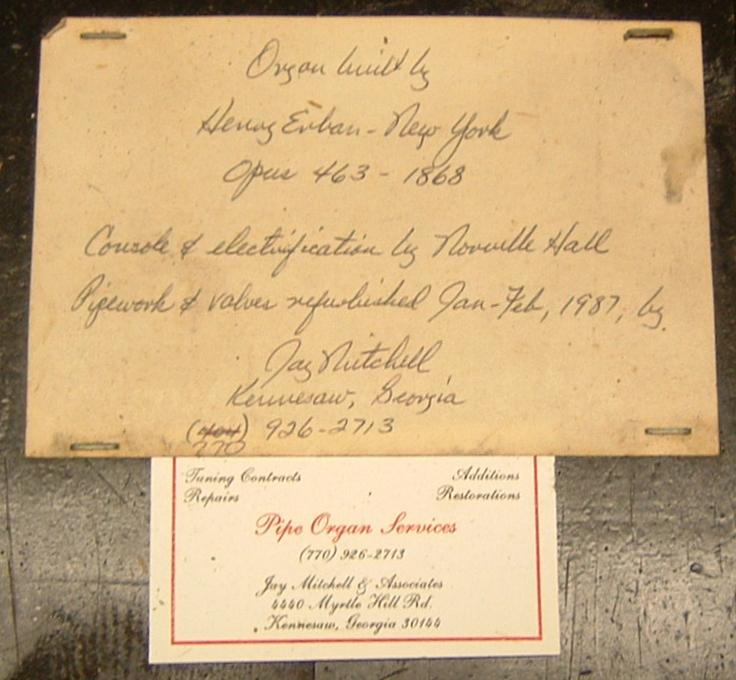 Organ built by
Henry Erban - New York
Opus 463 - 1868
Console & electrification by Norville Hall
Pipework & valves refurbished Jan-Feb, 1987, by
Jay Mitchell
Kennesaw, Georgia
(404) 926-2713
770
Tuning Contracts Additions
Repairs Restorations
Pipe Organ Services
(770) 926-2713
Jay Mitchell & Associates
4440 Myrtle Hill Rd.
Kennesaw, Georgia 30144